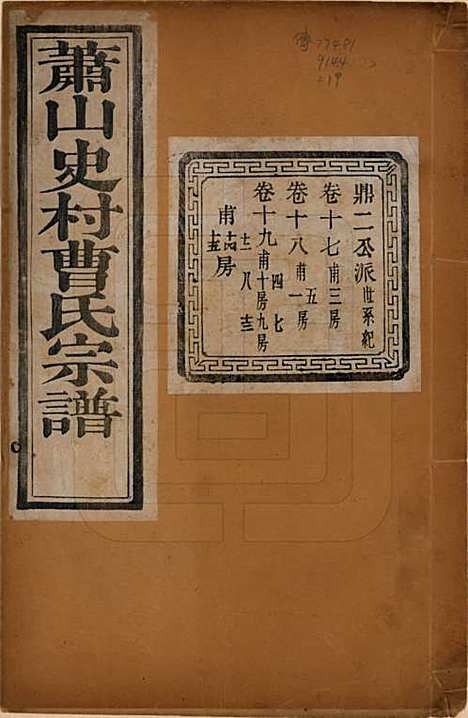 蕭山史村曹氏宗譜
鼎二公派世系紀
卷十七甫三房
卷十八甫一房
五
卷十九甫十房九房
四 七
十二 八 十三
甫 房
十五